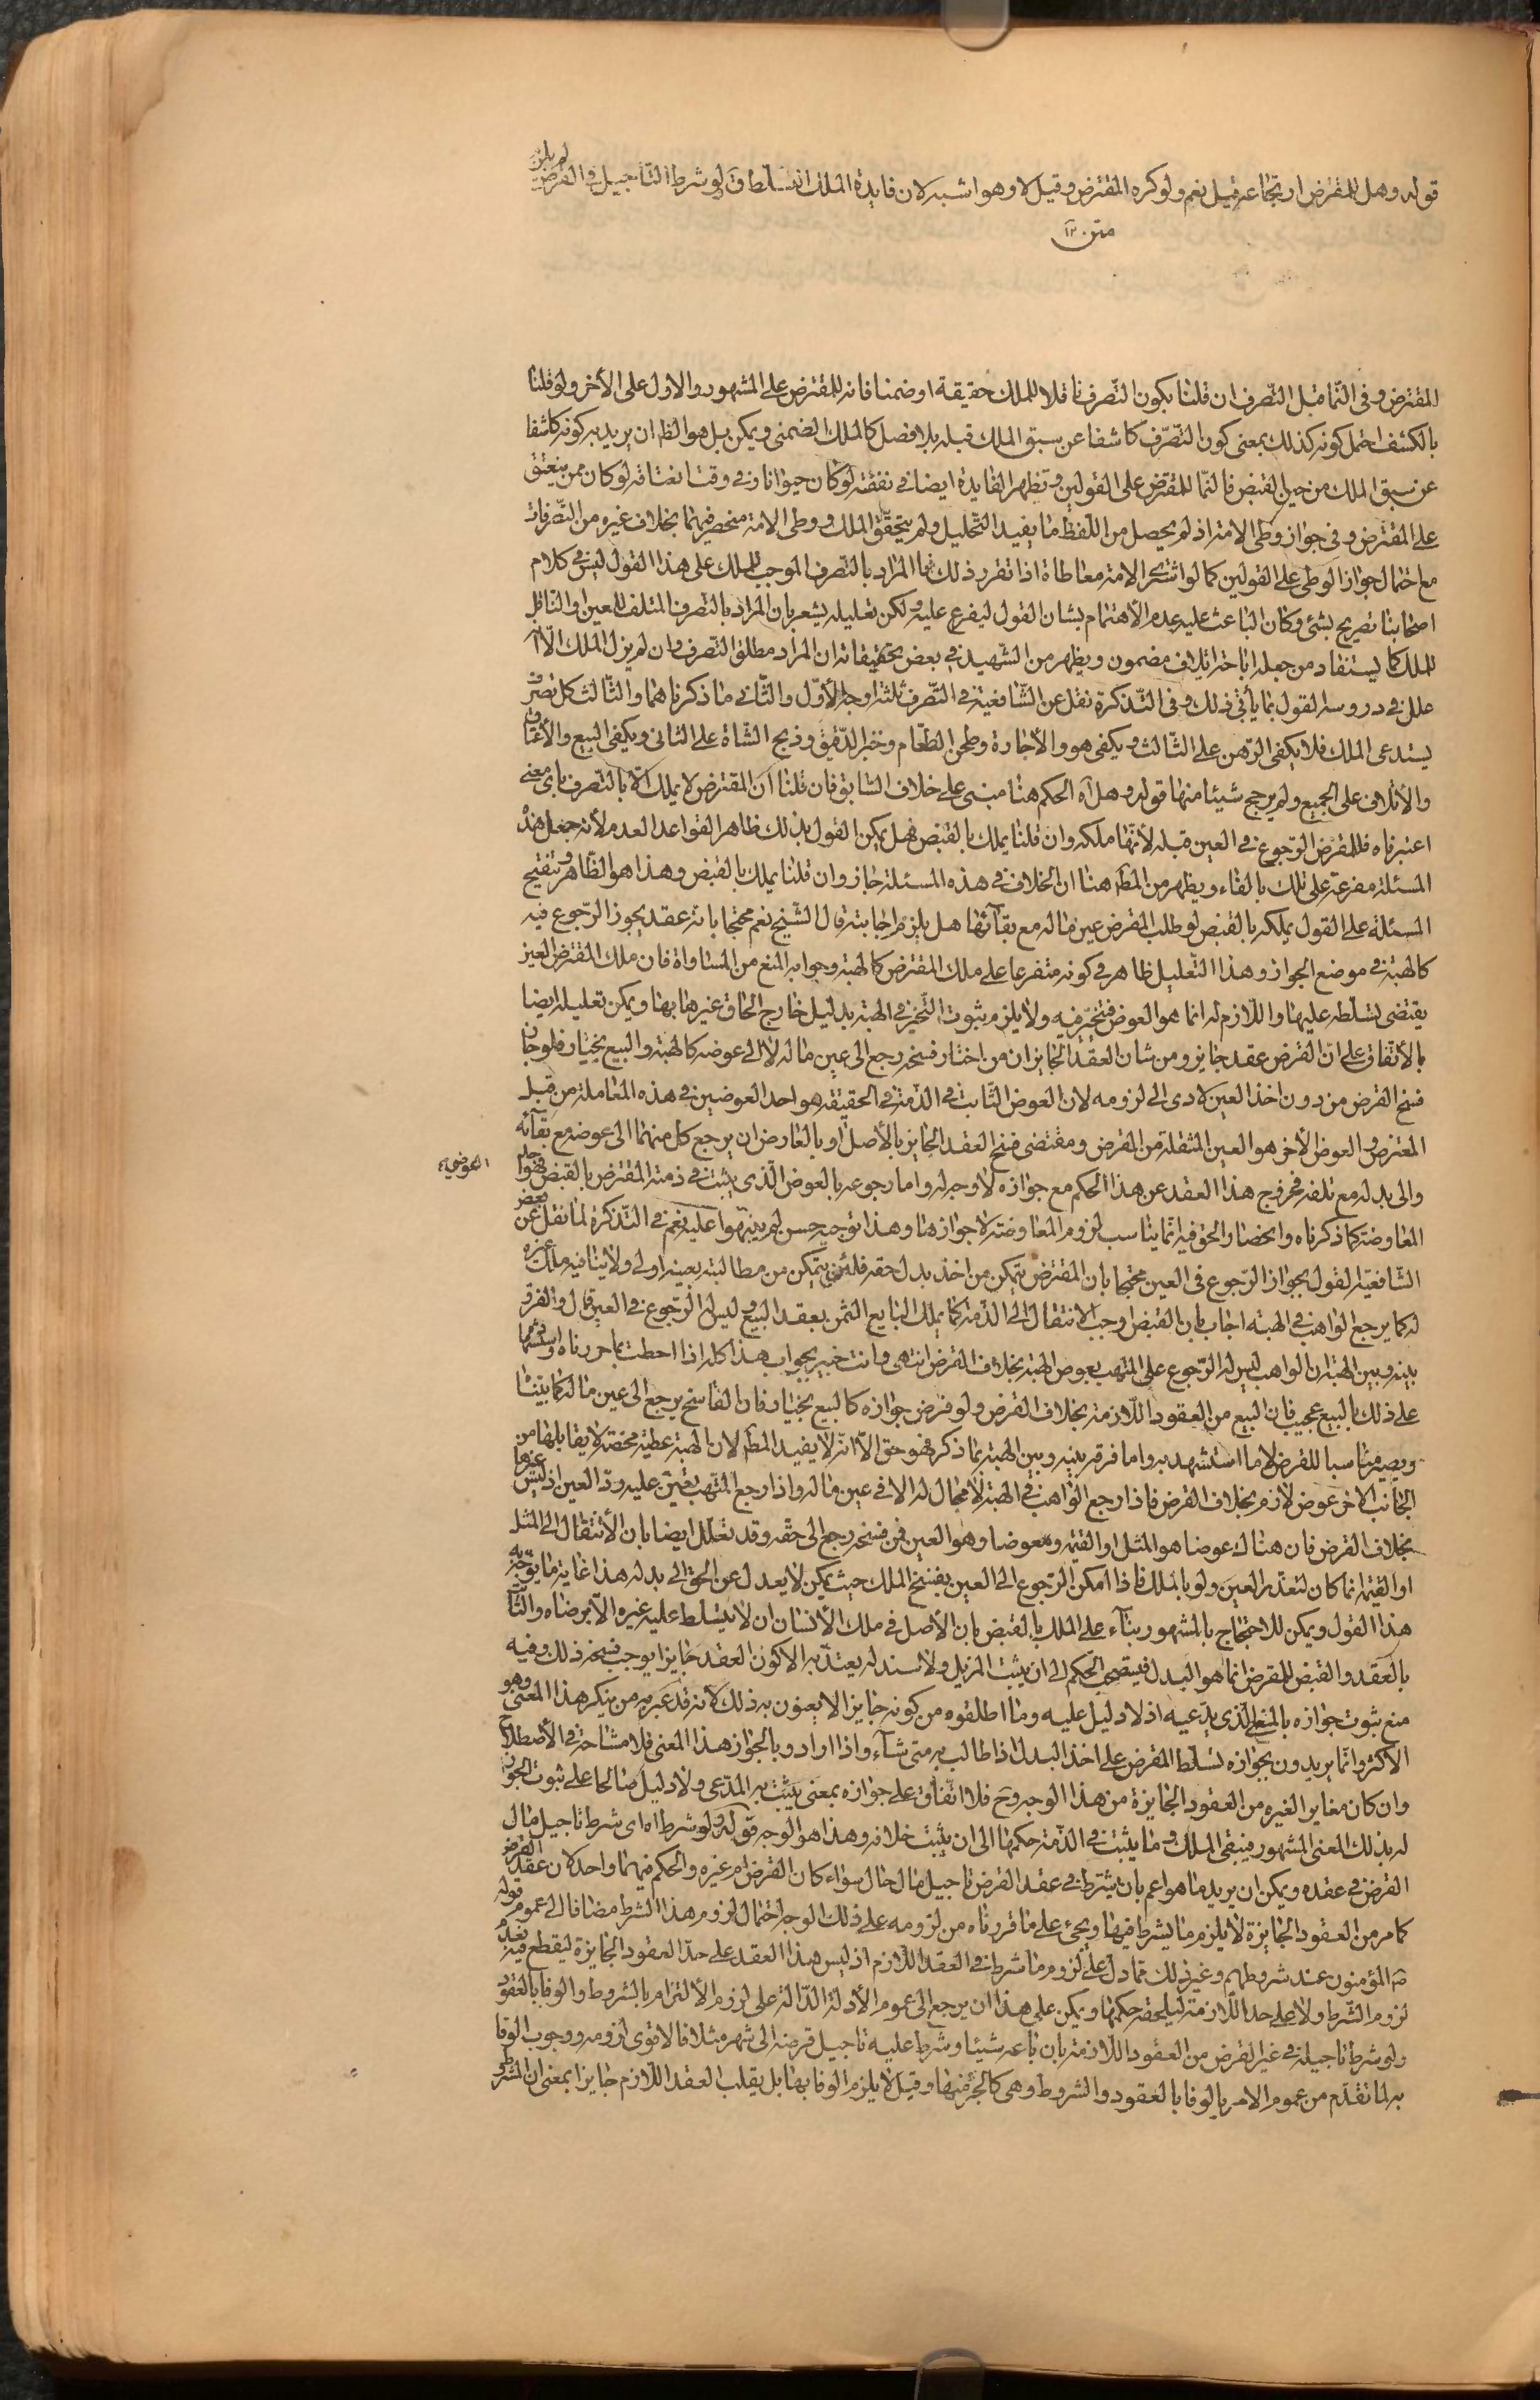 قوله وهل للمقرض ارتجاعه قيل نعم ولو كره المقترض وقيل لا وهو اشبه لان فايدة الملك التسلط ق ولو شرط التاجيل في القرض لم يلزم
متن ١٢
المقترض وفى النما قبل التصرف ان قلنا بكون التصرف ناقلا للملك حقيقة او ضمنا فانه للمقرض على المشهور والاول على الأخر ولو قلنا
بالكشف احتمل كونه كذلك بمعنى كون التصرف كاشفا عن سبق الملك قبله بلا فصل كالملك الضمنى ويمكن بل هو الظ ان يريد به كونه كاشفا
عن سبق الملك من حين القبض فالنما للمقترض على القولين وتظهر الفايدة ايضا في نفقته لو كان حيوانا وفى وقت انعتاقه لو كان ممن ينعتق
على المقترض وفى جواز وطى الامة اذ لم يحصل من اللفظ ما يفيد التحليل ولم يتحقق الملك ووطى الامة منحصر فيهما بخلاف غيره من التصرفات
مع احتمال جواز الوطى على القولين كما لو اشترى الامة معاطاة اذا تقرر ذلك فما المراد بالتصرف الموجب للملك على هذا القول ليس في كلام
اصحابنا تصريح بشئ وكان الباعث عليه عدم الأهتمام بشان القول ليفرع عليه ولكن تعليله يشعر بان المراد بالتصرف المتلف للعين او الناقل
للملك كما يستفاد من جعله اباحة اتلاف مضمون ويظهر من الشهيد في بعض تحقيقاته ان المراد مطلق التصرف وان لم يزل الملك الا انه
علل في دروسه القول بما يأتى ذلك وفى التذكرة نقل عن الشافعية في التصرف ثلثة اوجه الأول والثانى ما ذكرناهما والثالث كل تصرف
يستدعى الملك فلا يكفى الرهن على الثالث ويكفى هو والأجارة وطحن الطعام وخبز الدقيق وذبح الشاة على الثانى ويكفى البيع والأعتاق
والأتلاف على الجميع ولم يرجح شيئا منها قوله وهل اه الحكم هنا مبنى على خلاف السابق فان قلنا ان المقترض لا يملك الا بالتصرف باى معنى
اعتبرناه فللمقرض الرجوع في العين قبله لأنها ملكه وان قلنا يملك بالقبض فهل يمكن القول بذلك ظاهر القواعد العدم لأنه جعل هذه
المسئلة مفرعة على تلك بالفاء ويظهر من المص هنا ان الخلاف في هذه المسئلة جاز وان قلنا يملك بالقبض وهذا هو الظاهر وتنقيح
المسئلة على القول بملكه بالقبض لو طلب المقرض عين ماله مع بقائها هل يلزم اجابته قال الشيخ نعم محتجا بانه عقد يجوز الرجوع فيه
كالهبة في موضع الجواز وهذا التعليل ظاهر في كونه متفرعا على ملك المقترض كالهبة وجوابه المنع من المساواة فان ملك المقترض للعين
يقتضى تسلطه عليها واللازم له انما هو العوض فتخير فيه ولا يلزم بثبوت التخير في الهبة بدليل خارج الحاق غيرها بها ويمكن تعليله ايضا
بالأتفاق على ان القرض عقد جايز ومن شان العقد الجايز ان من اختار فسخه رجع الى عين ماله لا الى عوضه كالهبة والبيع بخيار فلو جاز
فسخ القرض من دون اخذ العين لادى الى لزومه لان العوض الثابت في الذمة في الحقيقة هو احد العوضين في هذه المعاملة من قبل
المقترض والعوض الأخر هو العين المنتقلة من المقرض ومقتضى فسخ العقد الجايز بالأصل او بالعارض ان يرجع كل منهما الى عوضه مع بقائه
والى بدله مع تلفه فخروج هذا العقد عن هذا الحكم مع جوازه لا وجه له واما رجوعه بالعوض الذى يثبت في ذمة المقترض بالقبض فهو احد
العوضين
المعاوضة كما ذكرناه وانحصار الحق فيه انما يناسب لزوم المعاوضة لا جوازها وهذا توجيه حسن لم ينبهوا عليه نعم في التذكرة لما نقل عن بعض
الشافعية القول بجواز الرجوع فى العين محتجا بان المقترض يتمكن من اخذ بدل حقه فلئن يتمكن من مطالبته بعينه اولى ولا ينافيه ملك غيره
له كما يرجع الواهب في الهبة اجاب بان القبض اوجب الانتقال الى الذمة كما يملك البايع الثمن بعقد البيع وليس له الرجوع في العين قال والفرق
بينه وبين الهبة ان الواهب ليس له الرجوع على المتهب بعوض الهبة بخلاف القرض انتهى وانت خبير بجواب هذا كله اذا احطت بما حررناه واستشهاده
على ذلك بالبيع عجيب فان البيع من العقود اللازمة بخلاف القرض ولو فرض جوازه كالبيع بخيار فان الفاسخ يرجع الى عين ماله كما بيناه
ويصير مناسبا للقرض لا ما استشهد به واما فرقه بينه وبين الهبة بما ذكر فهو حق الا انه لا يفيد المط لان الهبة عطية محضة لا يقابلها من
الجانب الاخر عوض لازم بخلاف القرض فاذا رجع الواهب في الهبة لا مجال له الا في عين ماله واذا رجع المتهب تعين عليه رد العين اذ ليس غيرها
بخلاف القرض فان هناك عوضا هو المثل او القيمة ومعوضا وهو العين فمن فسخه رجع الى حقه وقد تعلل ايضا بان الأنتقال الى المثل
او القيمة انما كان لتعذر العين ولو بالملك فاذا امكن الرجوع الى العين بفسخ الملك حيث يمكن لا يعدل عن الحق الى بدله هذا غاية ما يوجه به
هذا القول ويمكن للاحتجاج بالمشهور بناء على الملك بالقبض بان الأصل في ملك الأنسان ان لا يتسلط عليه غيره الا برضاه والثابت
بالعقد والقبض للمقرض انما هو البدل فيستصحب الحكم الى ان يثبت المزيل ولا سند له يعتد به الا كون العقد جايزا يوجب فسخه ذلك وفيه
منع ثبوت جوازه بالمعنى الذى يدعيه اذ لا دليل عليه وما اطلقوه من كونه جايزا لا يعنون به ذلك لأنه قد عبر به من ينكر هذا المعنى وهو
الأكثر وانما يريدون بجوازه تسلط المقرض على اخذ البدل اذا طالب به متى شاء واذا ارادوا بالجواز هذا المعنى فلا مشاحة في الأصطلاح
وان كان مغايرا لغيره من العقود الجايزة من هذا الوجه وح فلا اتفاق على جوازه بمعنى يثبت به المدعى ولا دليل صالحا على ثبوت الجواز
له بذلك المعنى المشهور فيبقى الملك وما يثبت في الذمة حكمهما الى ان يثبت خلافه وهذا هو الوجه قوله ولو شرط اه اى شرط تاجيل مال
القرض في عقده ويمكن ان يريد ما هو اعم بان يشترط في عقد القرض تاجيل مال حال سواء كان القرض ام غيره والحكم فيهما واحد لان عقد القرض
كما مر من العقود الجايزة لا يلزم ما يشرط فيها ويجئ على ما قررناه من لزومه على ذلك الوجه احتمال لزوم هذا الشرط مضافا الى عموم قوله
ص المؤمنون عند شروطهم وغير ذلك مما دل على لزوم ما شرط في العقد اللازم اذ ليس هذا العقد على حد العقود الجايزة ليقطع فيه بعدم
لزوم الشرط ولا على حد اللازمة ليلحقه حكمها ويمكن على هذا ان يرجع الى عموم الأدلة الدالة على لزوم الألتزام بالشروط والوفا بالعقود
ولو شرط تاجيله في غير القرض من العقود اللازمة بان باعه شيئا وشرط عليه تاجيل قرضه الى شهر مثلا فالاقوى لزومه ووجوب الوفا
به لما تقدم من عموم الامر بالوفا بالعقود والشروط وهى كالجزء منها وقيل لا يلزم الوفا بها بل يقلب العقد اللازم جايزا بمعنى ان المشروط